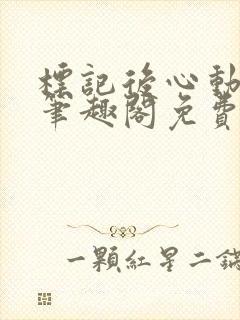 標記後心動
筆趣閣免費
一顆紅星二鍋